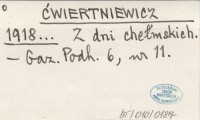 ĆWIERTNIEWICZ
1918... Z dni chełmskich.
– Gaz. Podh. 6, nr 11.